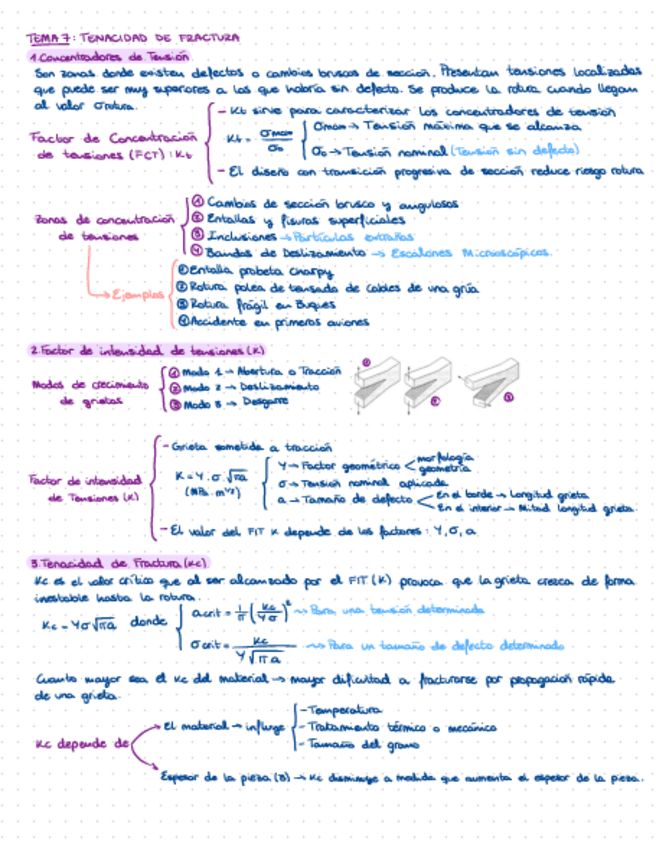 TEMA 7: TENACIDAD DE FRACTURA
1. Concentradores de Tensión
Son zonas donde existen defectos o cambios bruscos de sección. Presentan tensiones localizadas
que puede ser muy superiores a las que habría sin defecto. Se produce la rotura cuando llegan
al valor σrotura.
Factor de Concentración de tensiones (FCT): Kt
- Kt sirve para caracterizar los concentradores de tensión
Kt = σmax / σo
σmax → Tensión máxima que se alcanza
σo → Tensión nominal (Tensión sin defecto)
- El diseño con transición progresiva de sección reduce riesgo rotura
Zonas de concentración de tensiones
① Cambios de sección brusco y angulosos
② Entallas y fisuras superficiales
③ Inclusiones → Partículas extrañas
④ Bandas de Deslizamiento → Escalones Microscópicos.
Ejemplos
① Entalla probeta charpy
② Rotura polea de tensado de cables de una grúa
③ Rotura frágil en Buques
④ Accidente en primeros aviones
2. Factor de intensidad de tensiones (K)
Modos de crecimiento de grietas
① Modo 1 → Abertura o Tracción
② Modo 2 → Deslizamiento
③ Modo 3 → Desgarre
① ② ③
Factor de intensidad de Tensiones (K)
- Grieta sometida a tracción
K = Y · σ · √πa
(MPa · m^1/2)
Y → Factor geométrico < morfología
geometría
σ → Tensión nominal aplicada
a → Tamaño de defecto < En el borde → Longitud grieta
En el interior → Mitad longitud grieta.
- El valor del FIT K depende de los factores: Y, σ, a
3. Tenacidad de Fractura (Kc)
Kc es el valor crítico que al ser alcanzado por el FIT (K) provoca que la grieta crezca de forma
inestable hasta la rotura.
Kc = Yσ√πa donde
a crit = 1/π (Kc/Yσ)² → Para una tensión determinada
σ crit = Kc / Y√πa → Para un tamaño de defecto determinado
Cuanto mayor sea el Kc del material → mayor dificultad a fracturarse por propagación rápida
de una grieta.
Kc depende de
El material → influye
- Temperatura
- Tratamiento térmico o mecánico
- Tamaño del grano
Espesor de la pieza (B) → Kc disminuye a medida que aumenta el espesor de la pieza.